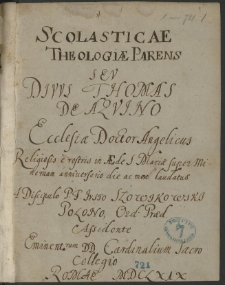 SCOLASTICAE
THEOLOGIÆ PARENS
SEV
DIVVS THOMAS
DE AQVINO
Ecclesiæ Doctor Angelicus
Religiosis è rostris in Æde S. Mariæ super Mi
neruam anniversario die ac modo laudatus
A Discipulo
POLONO, Ord. Præd.
Assidente
Eminent.rum DD. Cardinalium Sacro
Collegio
721
ROMÆ MDCLXIX